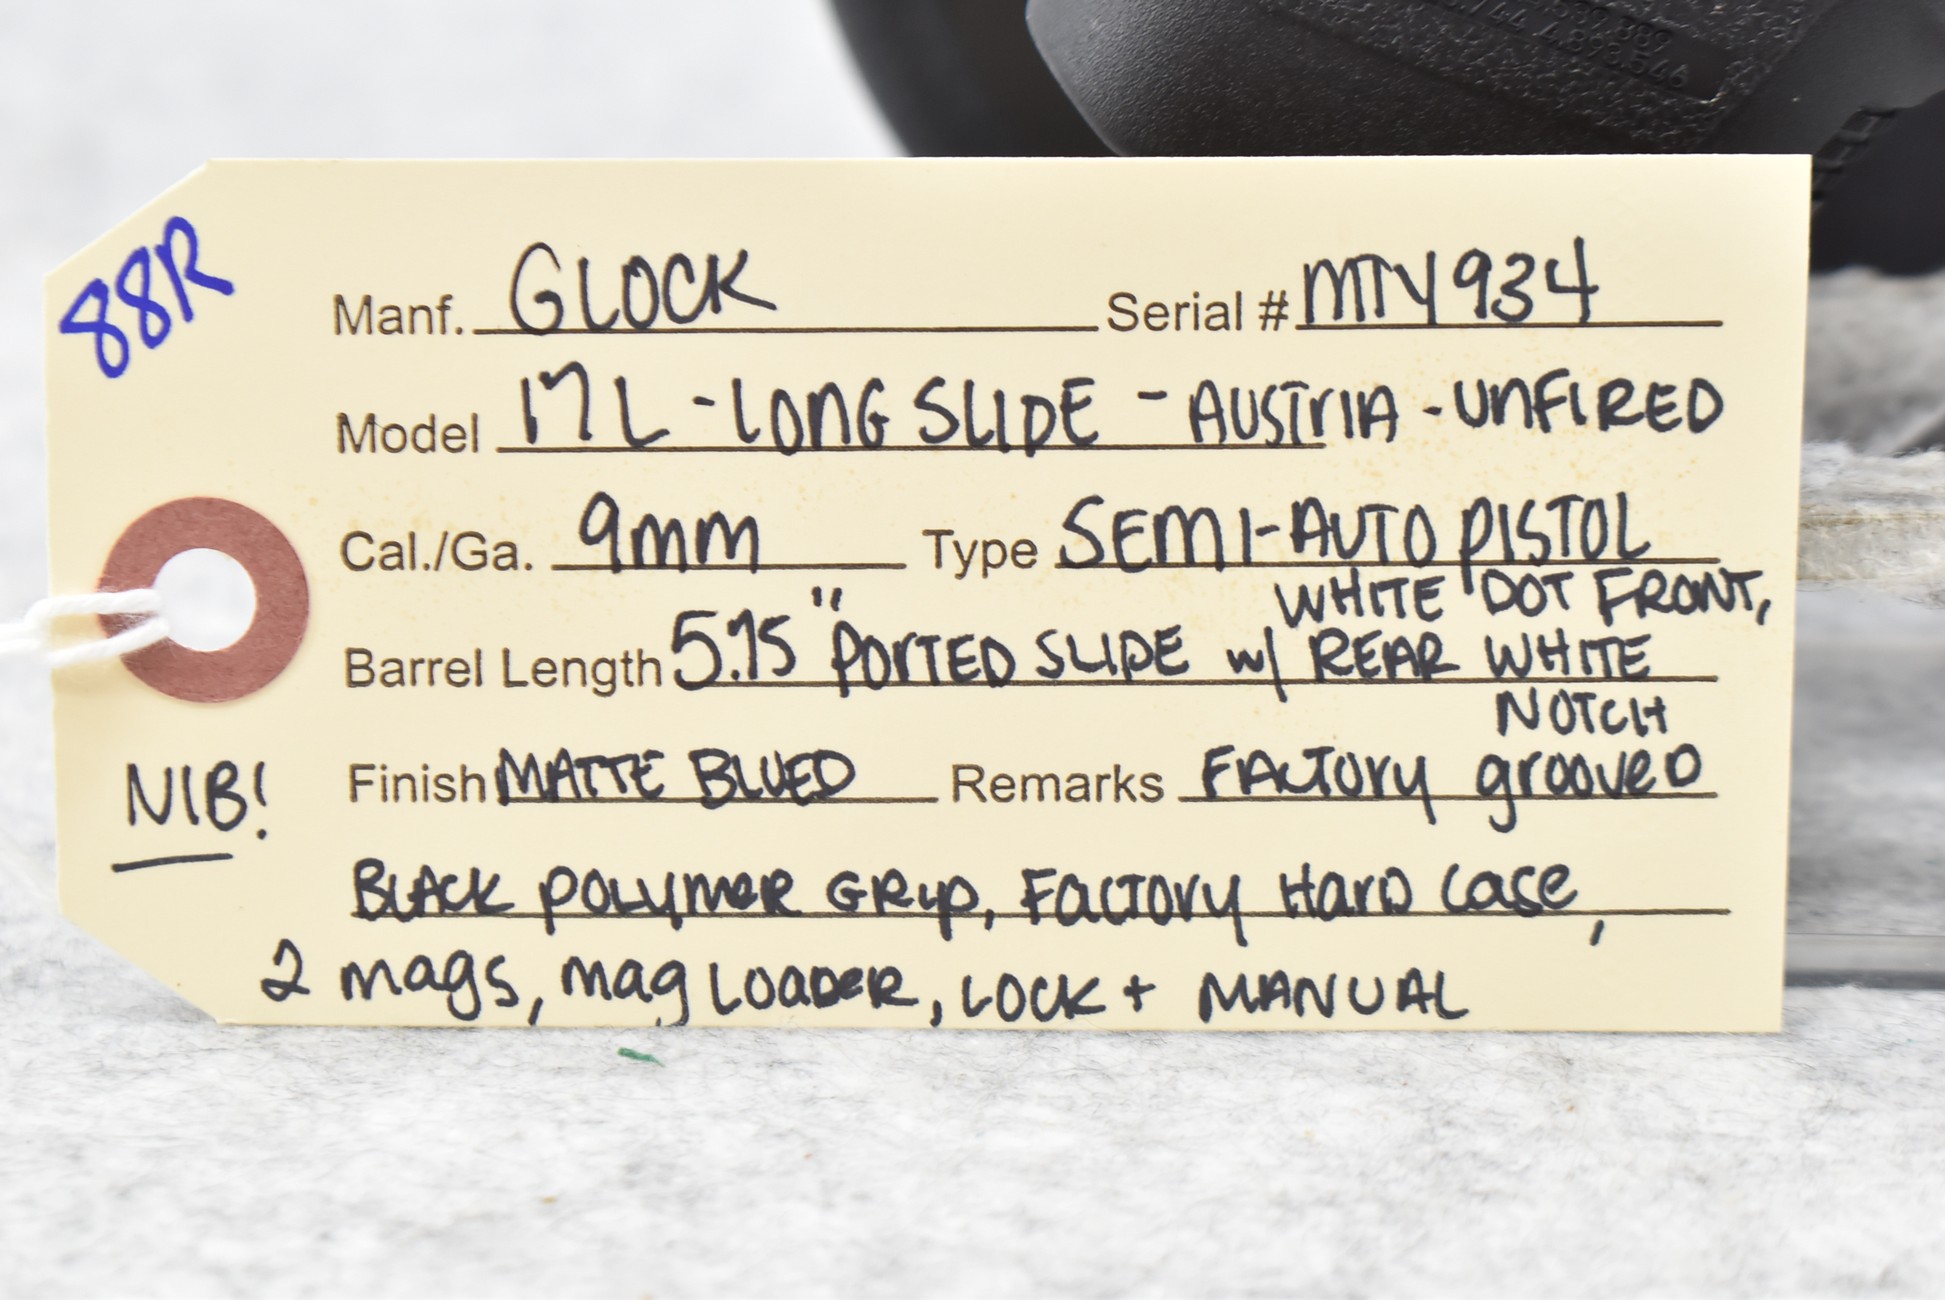 4.893.546
88R
Manf. GLOCK Serial # MTY934
Model 17L - LONG SLIDE - AUSTRIA - UNFIRED
Cal./Ga. 9mm Type SEMI-AUTO PISTOL
WHITE DOT FRONT,
Barrel Length 5.75" PORTED SLIDE w/ REAR WHITE
NOTCH
NIB!
Finish MATTE BLUED Remarks FACTORY grooved
BLACK POLYMER GRIP, FACTORY HARD CASE,
2 mags, mag LOADER, LOCK + MANUAL